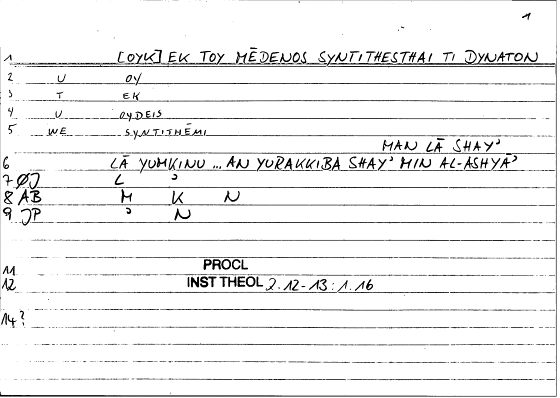 1
1 [OYK] EK TOY MĒDENOS SYNTITHESTHAI TI DYNATON
2 U OY
3 T EK
4 U OYDEIS
5 WE SYNTITHĒMI
MAN LĀ SHAYʾ
6 LĀ YUMKINU ... AN YURAKKIBA SHAYʾ MIN AL-ASHYĀʾ
7 ØJ L ʾ
8 AB M K N
9 JP ʾ N
11 PROCL
12 INST THEOL 2.12-13:1.16
14?